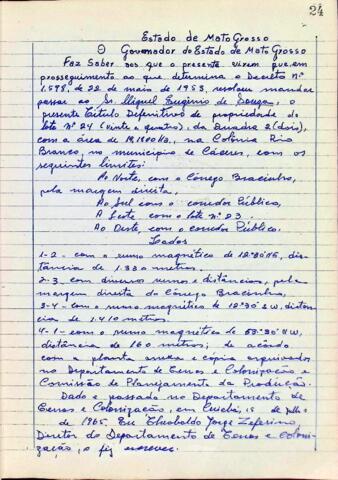 24
Estado de Mato Grosso
O Governador do Estado de Mato Grosso
Faz Saber aos que o presente virem que, em
prosseguimento ao que determina o Decreto Nº
1.598, de 22 de maio de 1953, resolveu mandar
passar ao Sr. Miguel Eugenio de Souza, o
presente Titulo Definitivo de propriedade do
lote Nº 24 (vinte e quatro), da Quadra 2 (dois),
com a área de Ha, na Colonia Rio
Branco, no municipio de Cáceres, com os
seguintes limites:
Ao Norte, com o Córrego Bracinho,
pela margem direita,
Ao Sul com o corredor Público,
A Leste com o lote Nº 23.
Ao Oeste, com o corredor Público.
Lados
1-2 - com o rumo magnético de 12º30'NE, dis-
tância de 1.330 metros.
2-3 - com diversos rumos e distâncias, pela
margem direita do Córrego Bracinho,
3-4 - com o rumo magnético de 12º30'SW, distân-
cia de 1.410 metros.
4-1 - com o rumo magnético de NW,
distância de 160 metros; de acôrdo
com a planta anexa e cópia arquivados
no Departamento de Terras e Colonização e
Comissão de Planejamento da Produção.
Dado e passado no Departamento de
Terras e Colonização, em Cuiabá, 15 de Julho
de 1965. Eu Theobaldo Jorge Zeferino
Diretor do Departamento de Terras e Coloni-
zação, o fiz escrever.